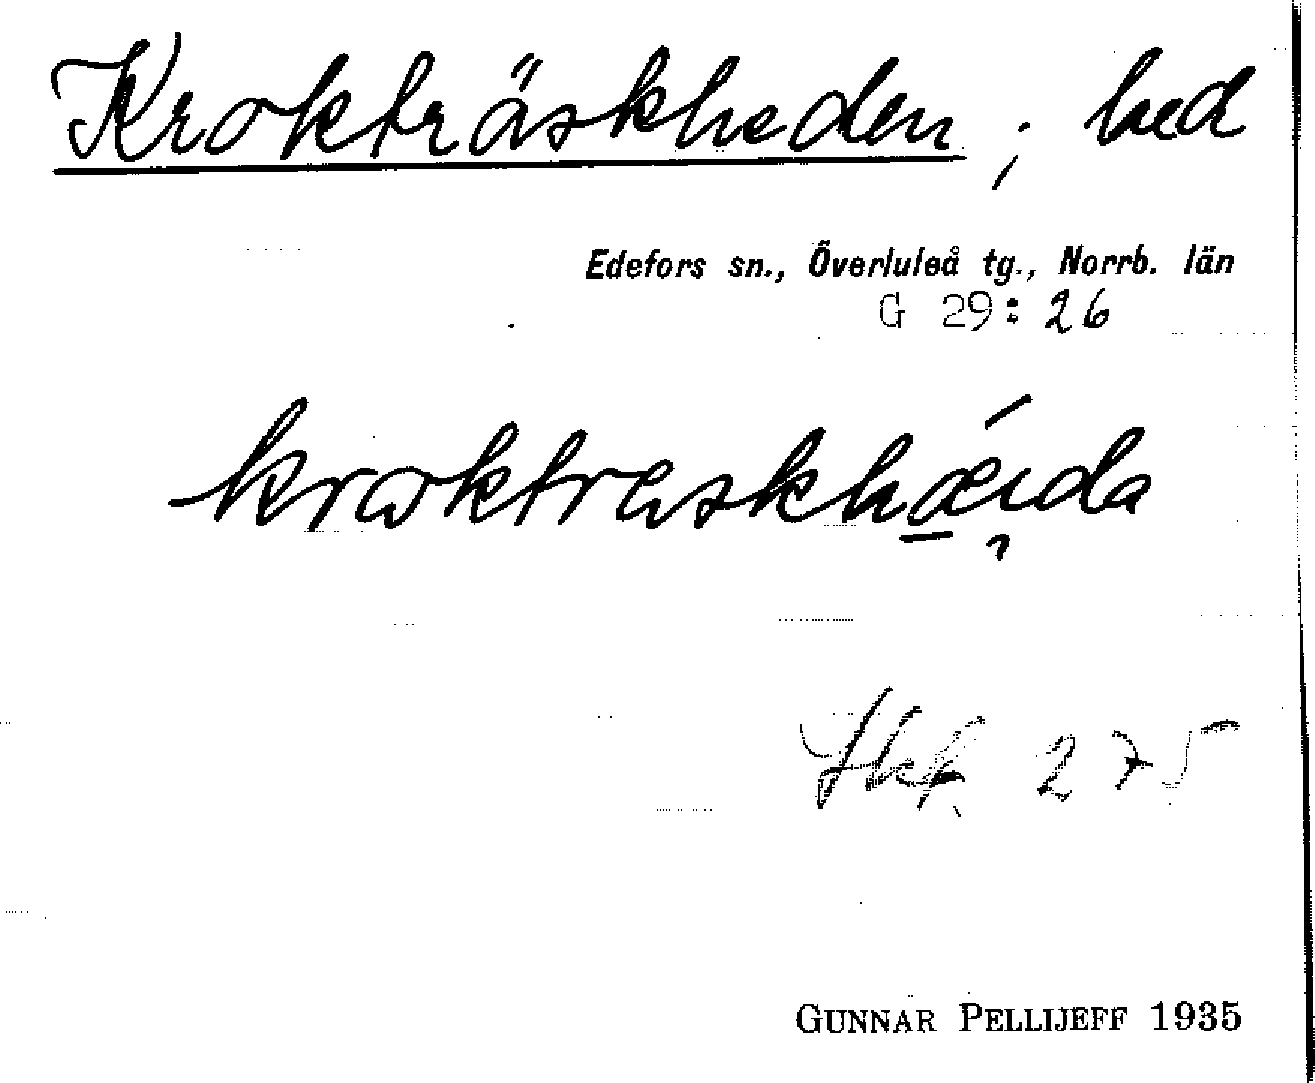 Krokträskheden ; hed
Edefors sn., Överluleå tg., Norrb. län
G 29: 26
275
GUNNAR PELLIJEFF 1935